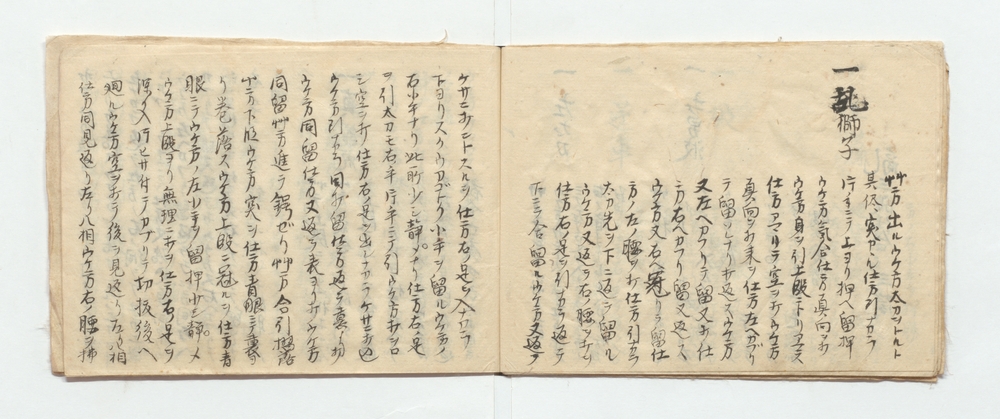 一 乱獅子
艸方出ルウケ方太刀ヲトルト
其侭突ケル仕方引ナカラ
片手ニテ上ヨリ押ヘ留押
ウケ方気合仕方真向ヲ打
ウケ方身ヲ引上段ニトリアマス
仕方アマリテ空ヲ打ウケ方
真向ヲ打来ル仕方左ヘカブリ
テ留ソレヨリ打返スウケ方
又左ヘカブリテ留又打仕
方右ヘカブリ留又返ス
ウケ方又右ヘ冠リ留仕
方ノ左ノ腰ヲ打仕方引ナカラ
太刀先ヲ下ニ返シテ留ル
ウケ方又返シ右ノ腰ヲ打ツ
仕方右ノ足ヲ引ナカラ返シテ
下ニテ合留ルウケ方又返シテ
ケサニ打ントスルヲ仕方右ノ足ヲ入ナカラ
下ヨリスクウカゴトク小手ヲ留ルウケ方ノ
右小手ナリ此所少シ静ナリ仕方右ノ足
ヲ引太刀モ右手片手ニテ引ウケ方打ヲロ
シ空ヲ打仕方右ノ足ヲ出シナカラケサニ打込
ウケ方引ナカラ同ク打留仕方返シテ裏ヨリ打
ウケ方同留仕方又返シテ表ヨリ打ウケ方
同留艸方進テ鍔ゼリ艸方合引
小ニナリ下段ウケ方突ヲ仕方青眼ニテ
リ巻落スウケ方上段ニ冠ルヲ仕方青
眼ニテウケ方ノ左小手ヲ留押少シ静メ
ウケ方上段ヨリ無理ニ打ヲ仕方右ノ足ヲ
深ク入片ヒサ付テカブリテ切抜後ヘ
廻ルウケ方空ヲ打テ後ヲ見返リ左リ八相
仕方同見返リ左リ八相ウケ方右ノ腰ヲ拂